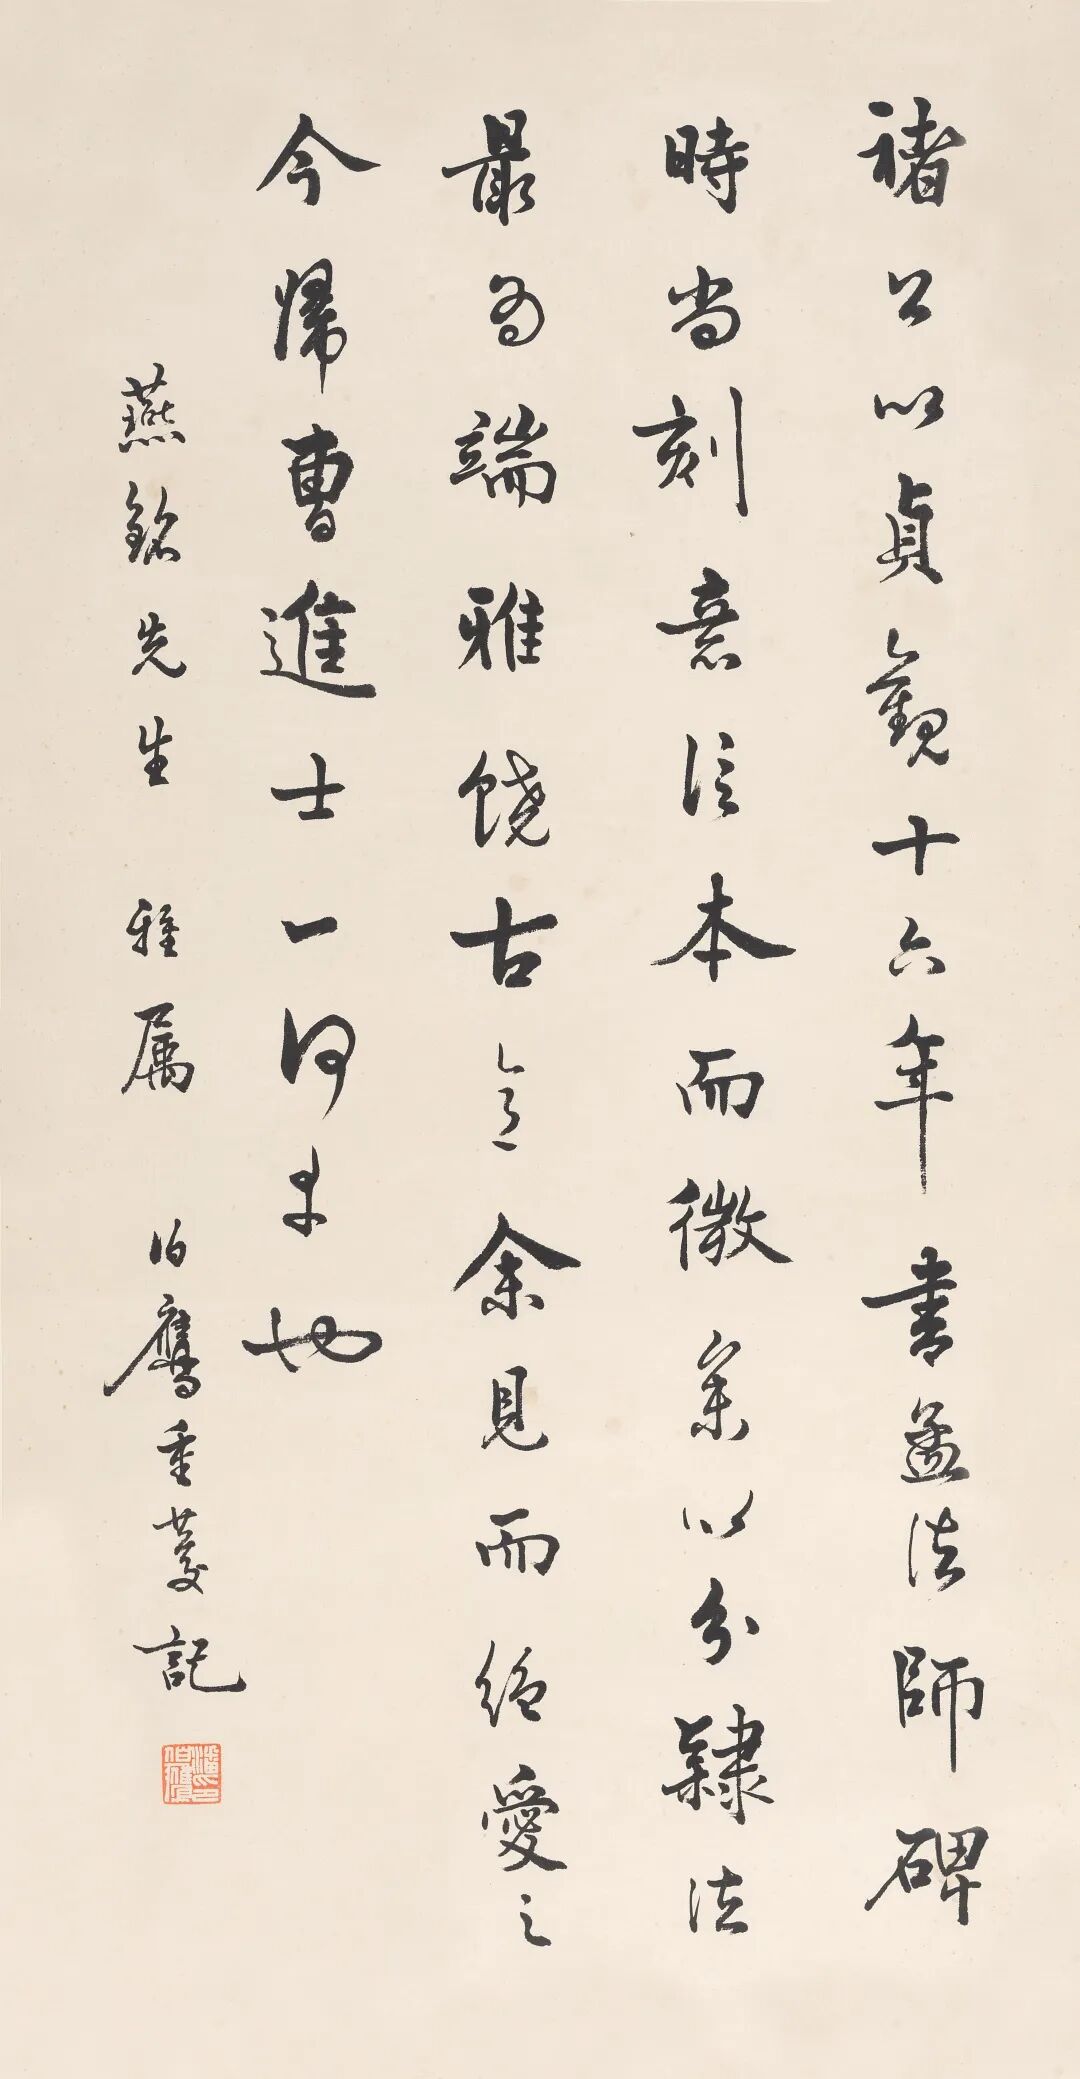 褚公以貞觀十六年書孟法師碑
時尚刻意信本而微參以分隸法
最為端雅饒古意余見而絕愛之
今歸曹進士一何幸也
燕銘先生 雅属 伯鷹重菱記
潘伯鷹印